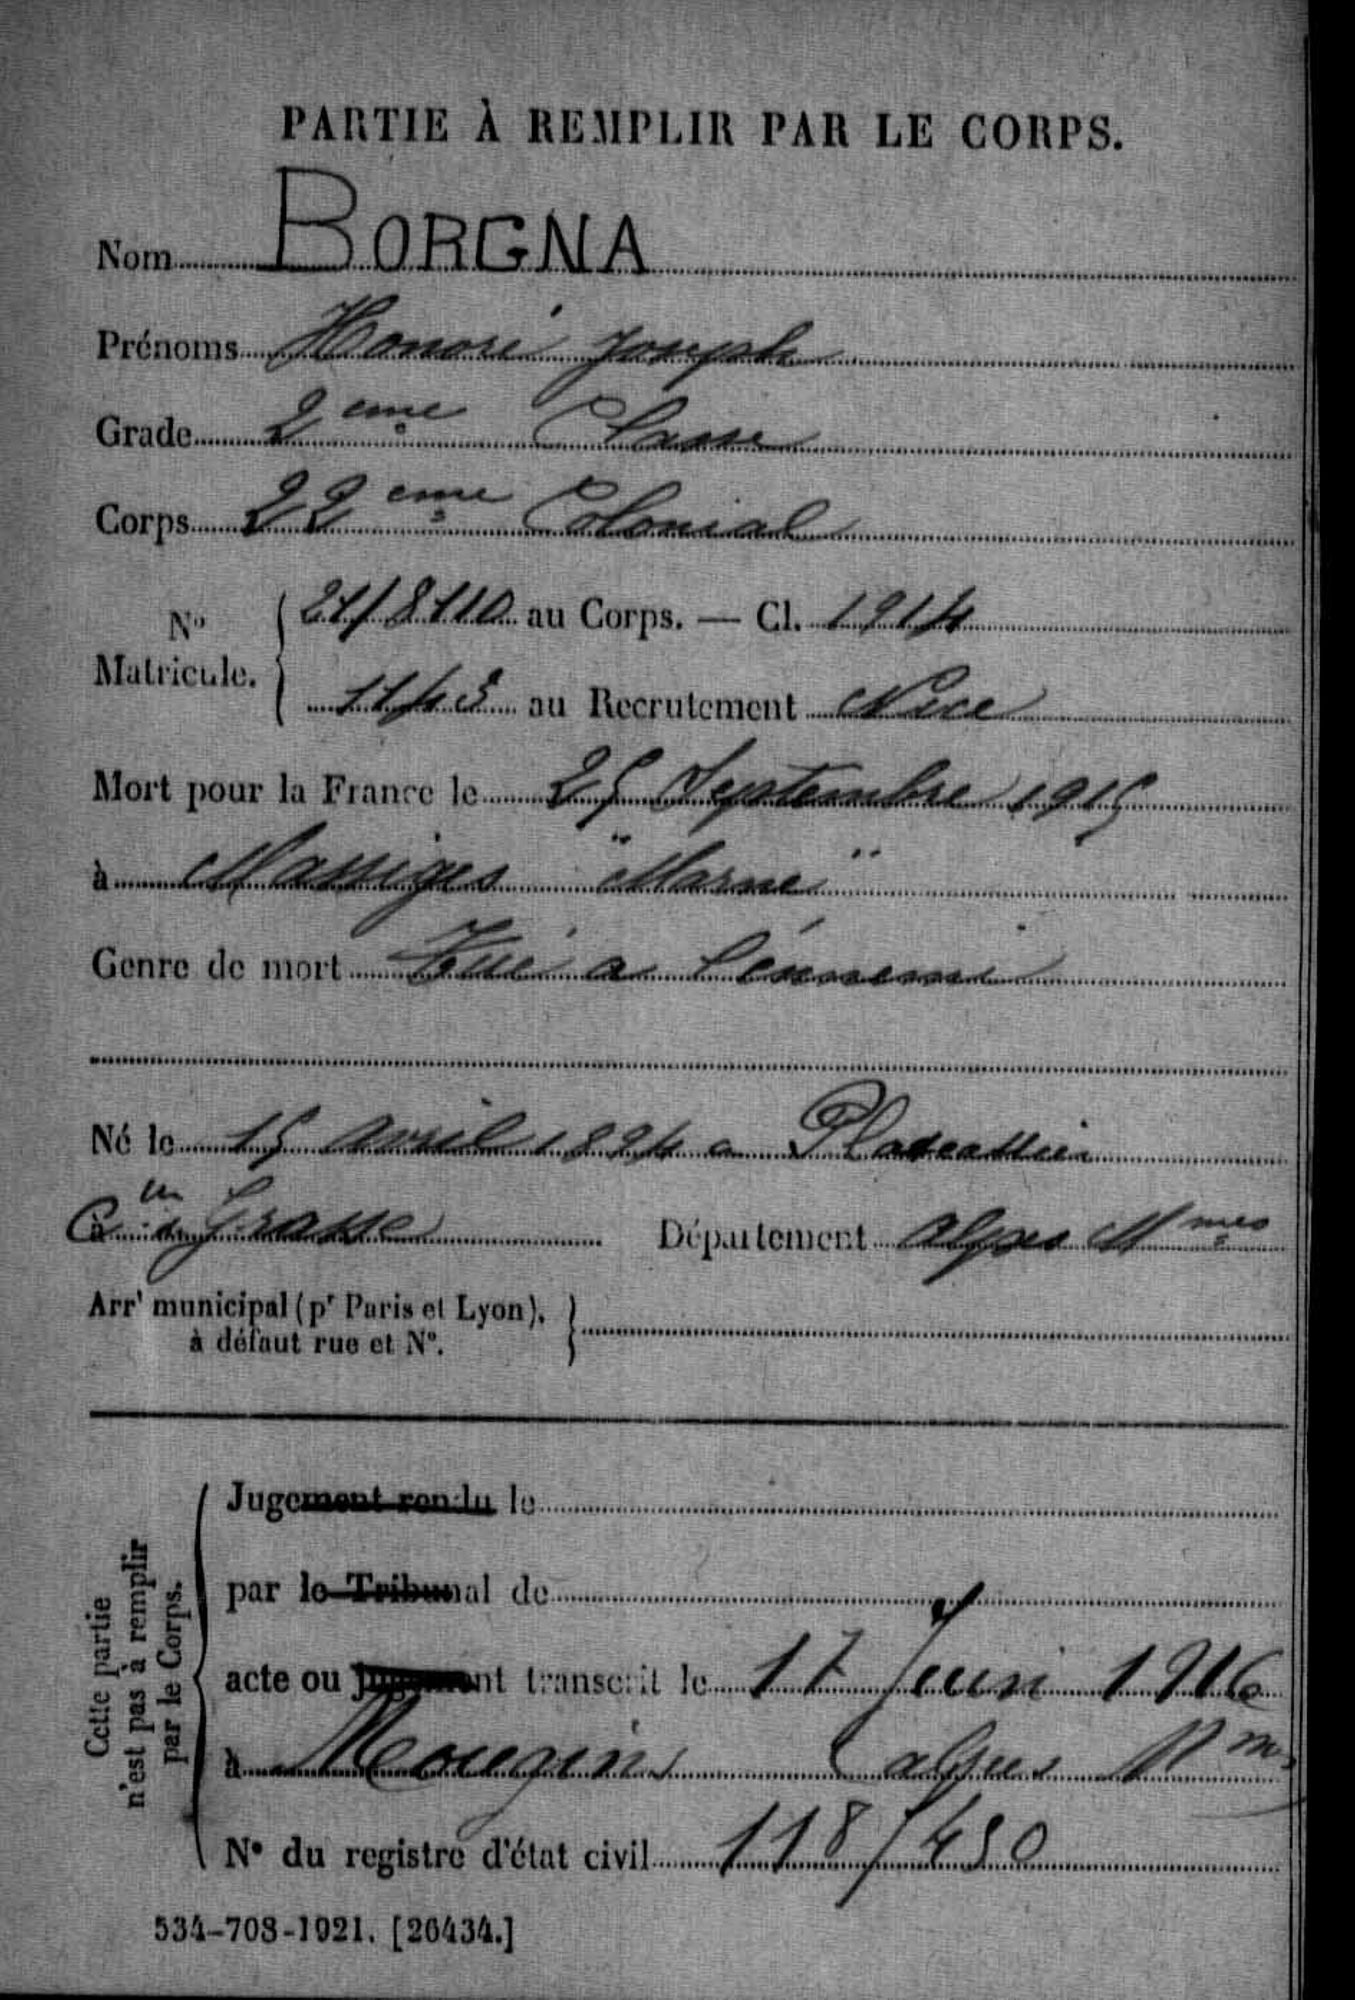 PARTIE À REMPLIR PAR LE CORPS.
Nom BORGNA
Prénoms Honoré Joseph
Grade 2eme Classe
Corps 22eme Colonial
No Matricule. 21/8110 au Corps. — Cl. 1914
1143 au Recrutement Nice
Mort pour la France le 25 Septembre 1915
à Massiges "Marne"
Genre de mort Tué a l'énnemi
Né le 15 Avril 1894 a Plascassier
Cun de Grasse Département Alpes Mmes
Arrt municipal (pr Paris et Lyon),
à défaut rue et No.
Cette partie
n'est pas à remplir
par le Corps.
Jugement rendu le
par le Tribunal de
acte ou jugement transcrit le 17 Juin 1916
à Mougins (alpes Mmes
No du registre d'état civil 118/450
534-708-1921. [26434.]